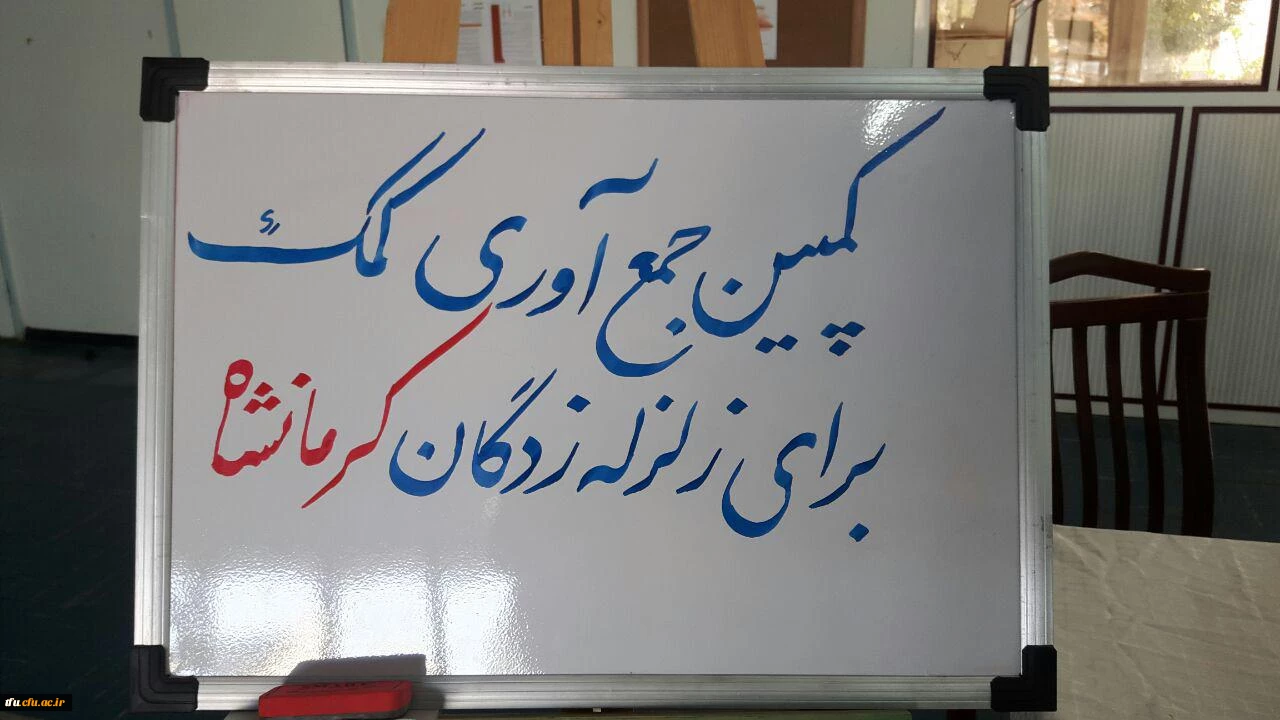 کمپین جمع آوری کمک
برای زلزله زدگان کرمانشاه
ifu.cfu.ac.ir